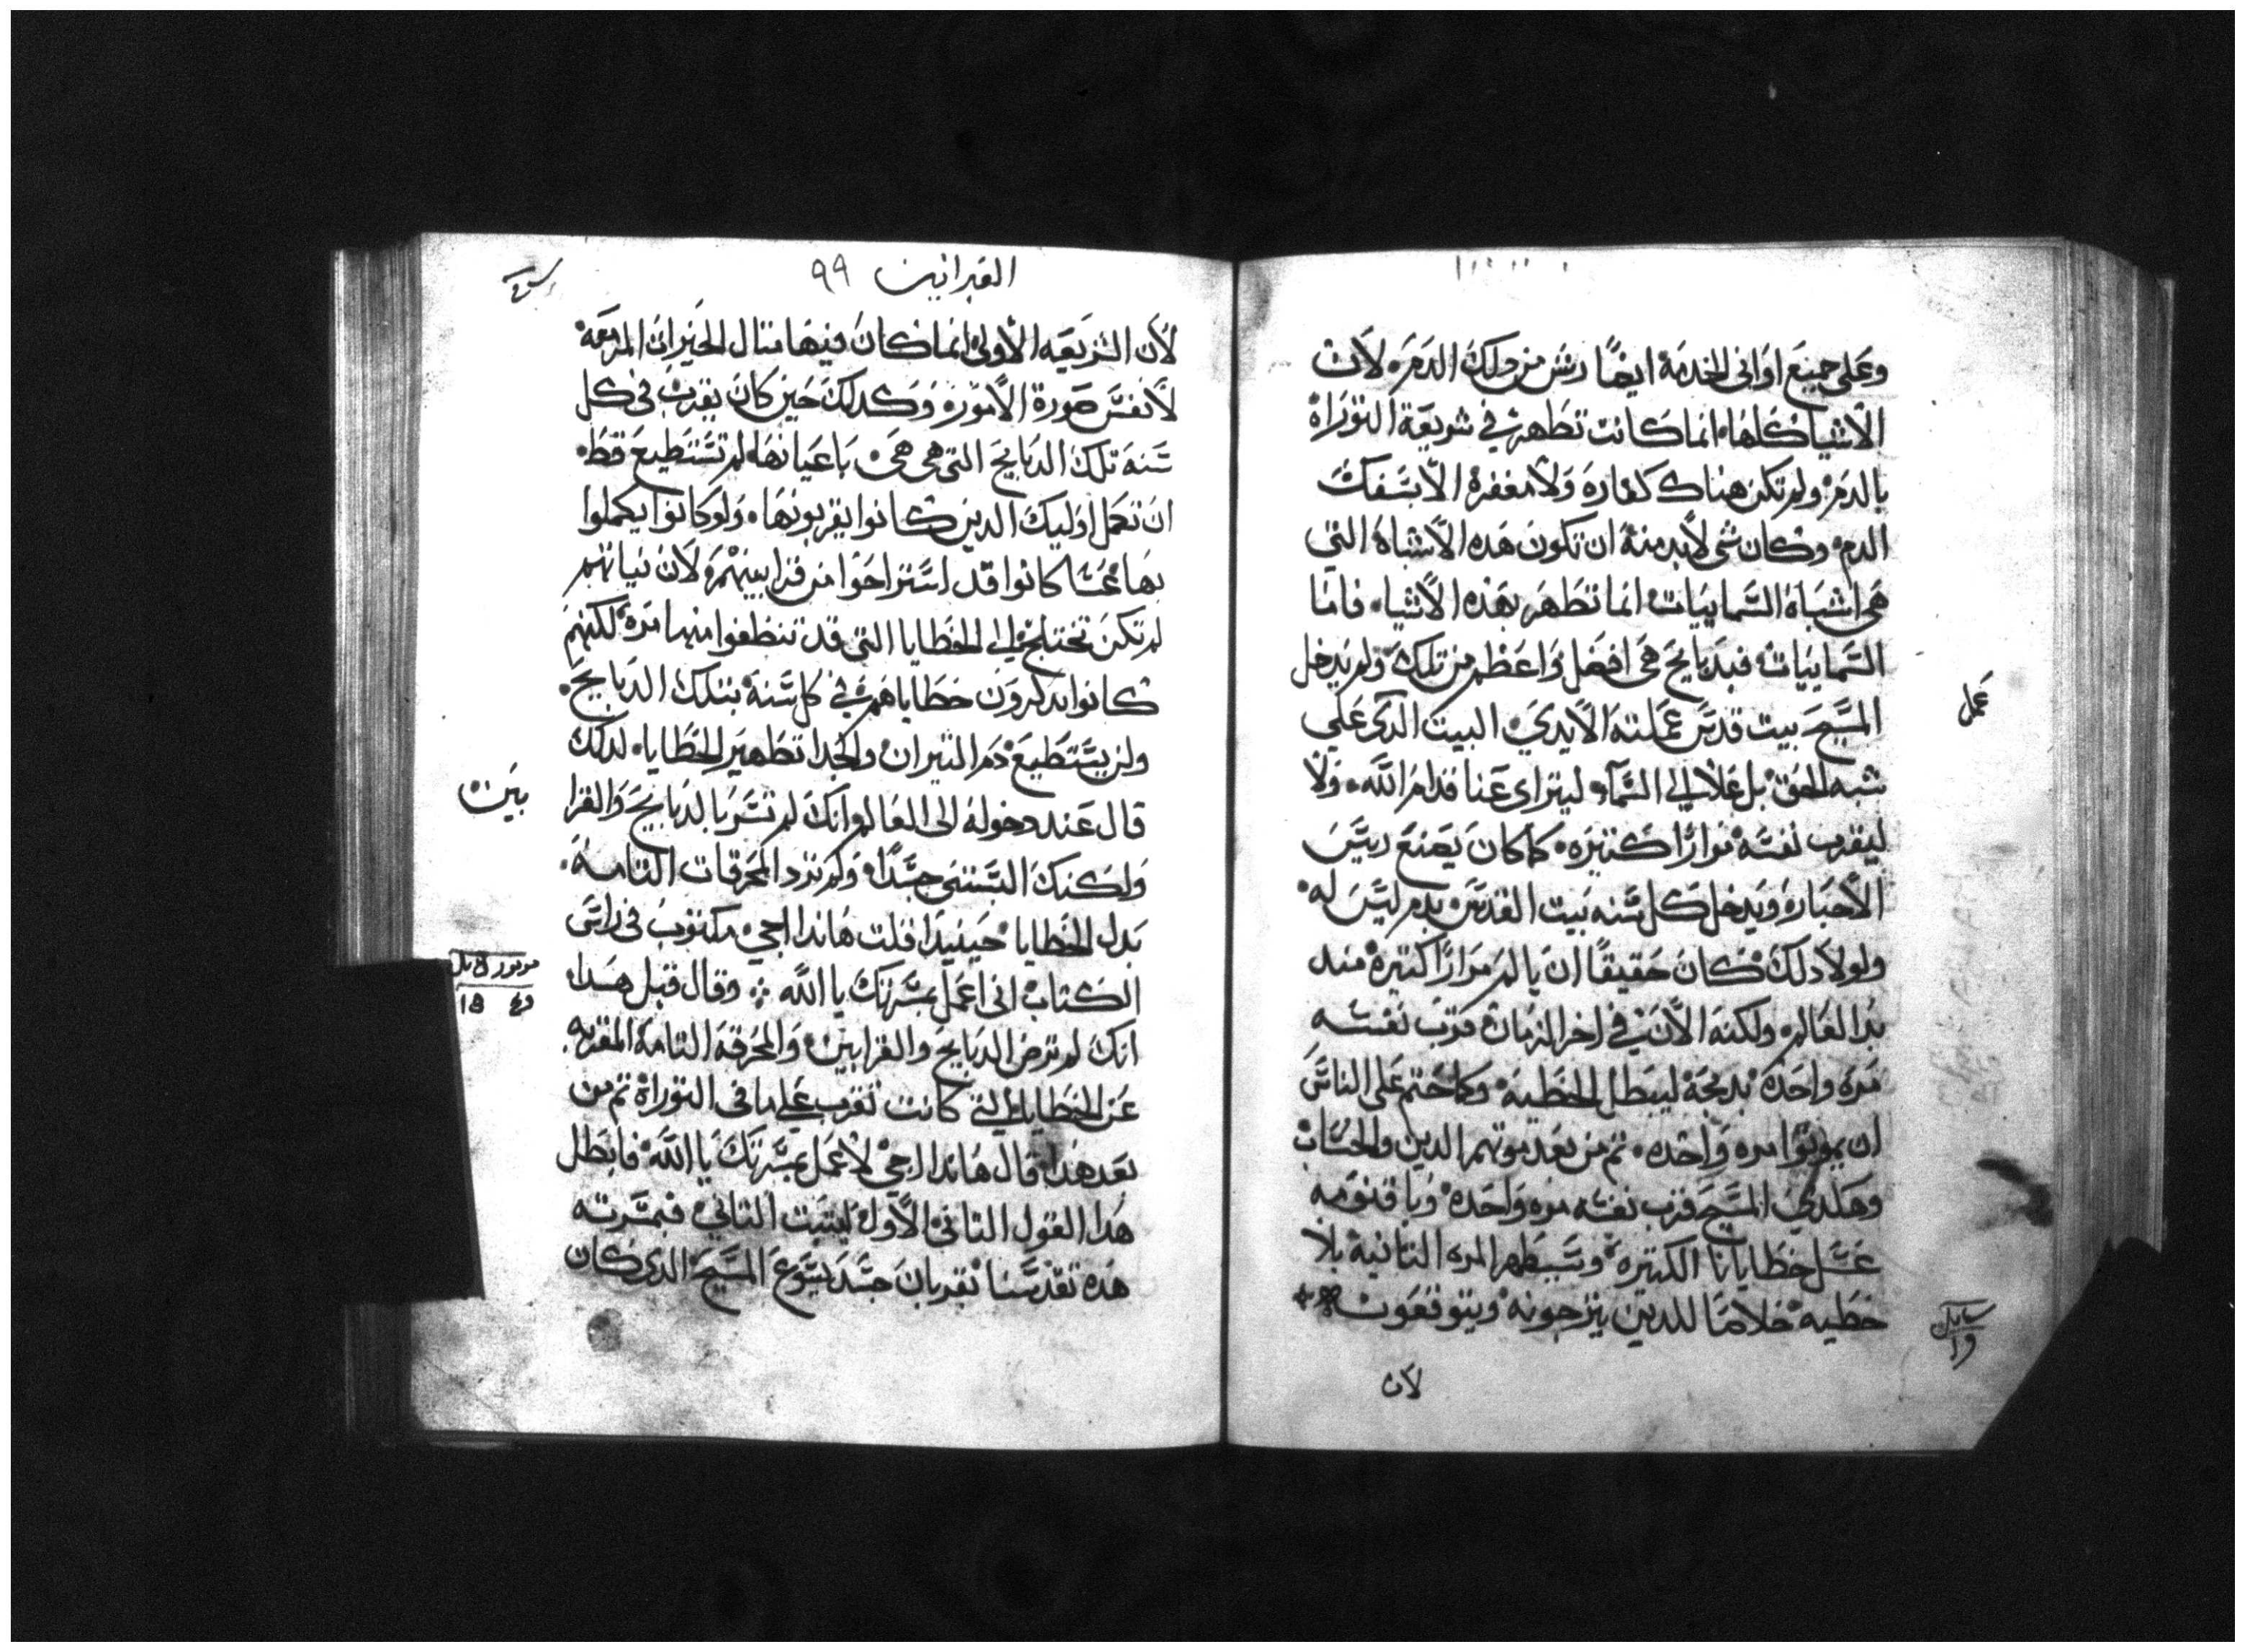 وعلى جميع اوانى الخدمة ايضًا رش من دلك الدم لان
الاشيا كلها انما كانت تطهر في شريعة التوراة
بالدم ولم تكن هناك كفارة ولا مغفرة الا بسفك
الدم وكان شى لابد منه ان تكون هده الاشباه التي
هى اشباه السماييات انما تطهر بهده الاشياء فاما
السماييات فبدبايح هى افضل واعظم من تلك ولم يدخل
المسيح بيت قدس عملته الايدي البيت الدى علي
شبه الحق بل علا الي السمآء ليتراى عنا قدام الله ولا
ليقرب نفسه مرارًا كتيره كما كان يصنع ريس
الاحبار ويدخل كل سنه بيت القدس بدم ليس له
ولولا دلك فكان حقيقًا ان يالم مرارًا كتيرة مند
بدا العالم ولكنه الان في اخر الزمان قرب نفسه
مرة واحدة بدبحة ليبطل الخطية وكما حتم على الناس
ان يموتوا مره واحده تم من بعد موتهم الدين والحساب
وهكدي المسيح قرب نفسه مره واحدة وباقنومه
غسل خطايانا الكتيرة وسيظهر المره التانية بلا
خطية خلاصًا للدين يترجونه ويتوقعون
لان
عمل
العبرانيين ٩٩
لان الشريعه الاولى انما كان فيها متال الخيرات المزمعة
لا نفس صورة الامور وكدلك حين كان يقرب فى كل
سنة تلك الدبايح التى هى هى باعيانها لم تستطيع قط
ان تكمل اوليك الدين كانوا يقربونها ولو كانوا يكملوا
بها عسا كانوا قد استراحوا من قرابينهم لان نياتهم
لم تكن تختلج الي الخطايا التى قد تنظفوا منها مرة لكنهم
كانوا يدكرون خطاياهم في كل سنة بتلك الدبايح
ولن يستطيع دم التيران والجدا تطهير الخطايا لدلك
قال عند دخوله الى العالم انك لم تسر بالدبايح والقرا
بين
ولكنك البستنى جسدًا ولم ترد المحرقات التامة
بدل الخطايا حينيدا قلت هاندا اجي مكتوب فى راس
الكتاب انى اعمل بمسرتك يا الله وقال قبل هدا
انك لم ترض الدبايح والقرابين والمحرقة التامة المقربه
عن الخطايا التي كانت تقرب علي ما فى التوراة تم من
بعد هدا قال هاندا اجي لاعمل بمسرتك يا الله فابطل
هدا القول التانى الاول ليتبت التاني فبمسرته
هده تقدسنا بقربان جسد يسوع المسيح الدى كان